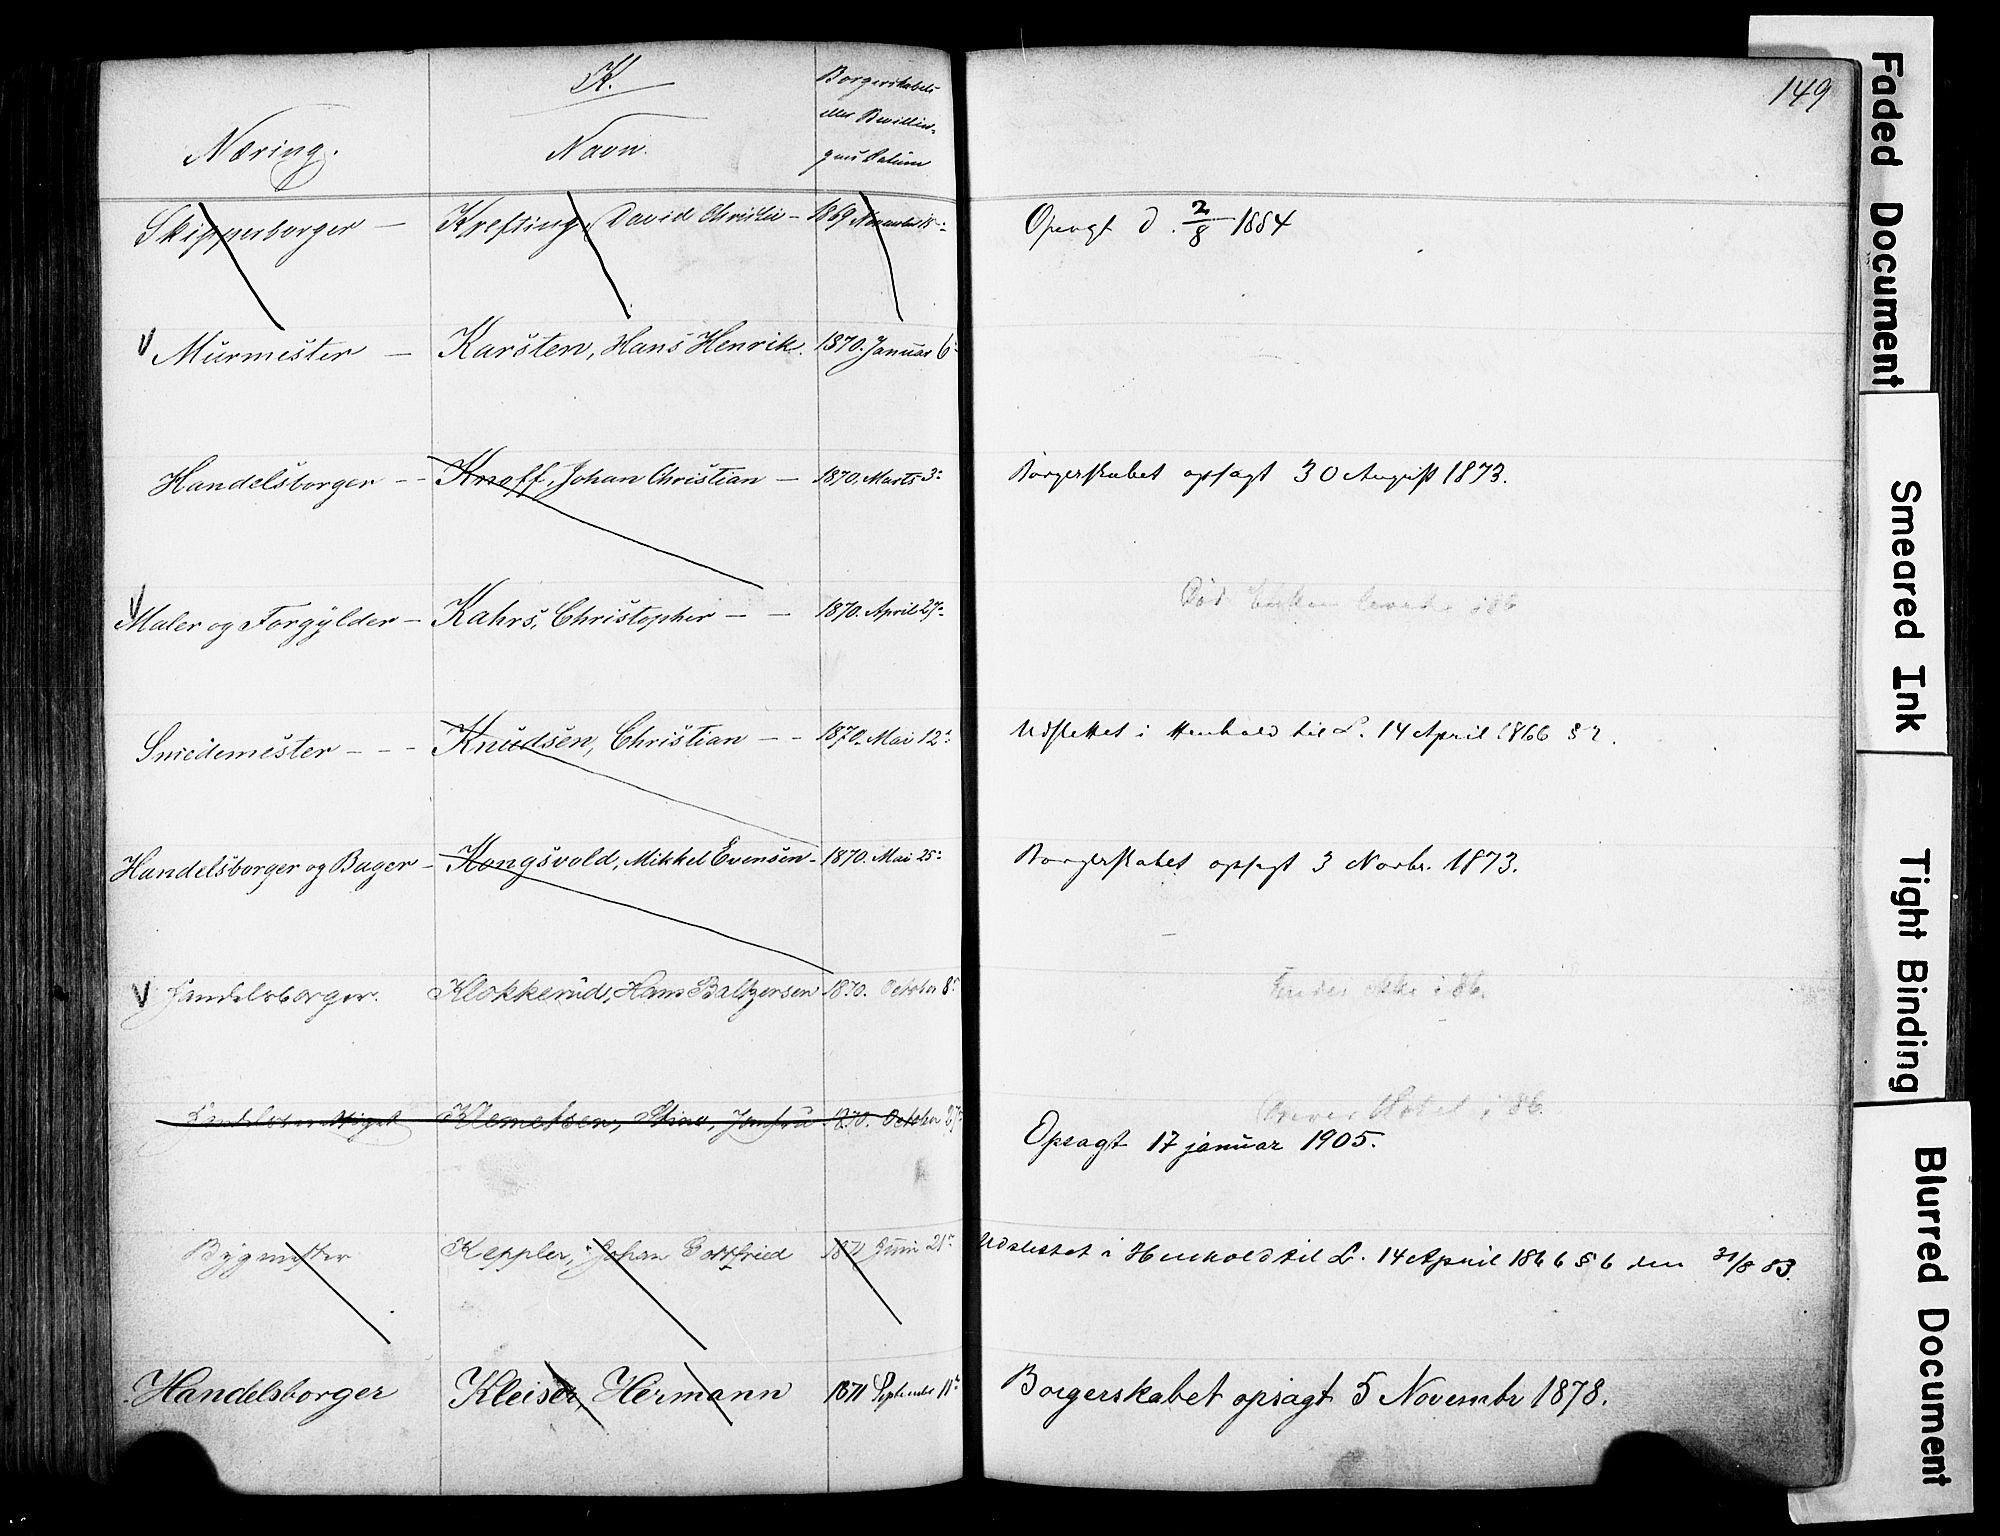 K.
149
Næring.
Navn.
Borgerskabets
eller Bevillin-
gens Datum
Skipperborger — Krefting, David Christie — 1869 November 15de Opsagt d. 2/8 1884
V Murmester — Karsten, Hans Henrik. 1870. Januar 6
Handelsborger — Knoff, Johan Christian — 1870. Marts 3: Borgerskabet opsagt 30 August 1873.
V Maler og Forgylder — Kahrs, Christopher — — 1870. April 27: Død. Enken lever i 86
Smedemester — — — Knudsen, Christian — — 1870. Mai 12: Udslettet i Henhold til L. 14 April 1866 § 2.
Handelsborger og Bager — Kongsvold, Mikkel Evensen — 1870. Mai 25: Borgerskabet opsagt 3 Novbr. 1873.
V Handelsborger. Klokkerud, Hans Baltzersen 1870. October 8: Findes ikke i 86.
Klemetsen, Stine, Jomfru 1870. October 27 Driver Hotel i 86
Opsagt 17 januar 1905.
Bygmester Keppler, Johan Gottfried 1871 Juni 21 Udslettet i Henhold til L. 14 April 1866 § 6 den 31/8 83.
Handelsborger Kleiser, Hermann 1871 September 11 Borgerskabet opsagt 5 Novembr 1878.
Faded Document
Smeared Ink
Tight Binding
Blurred Document